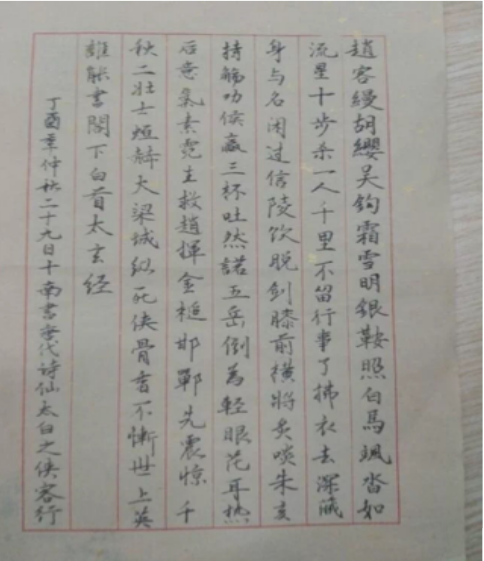 趙客缦胡纓吴鉤霜雪明銀鞍照白馬飒沓如
流星十步杀一人千里不留行事了拂衣去深藏
身与名闲过信陵饮脱剑膝前横將炙啖朱亥
持觞劝侯嬴三杯吐然諾五岳倒為輕眼花耳热
后意氣素霓生救趙揮金槌邯鄲先震惊千
秋二壮士烜赫大梁城纵死侠骨香不慚世上英
誰能書閣下白首太玄经
丁酉年仲秋二十九日十南書唐代诗仙太白之侠客行